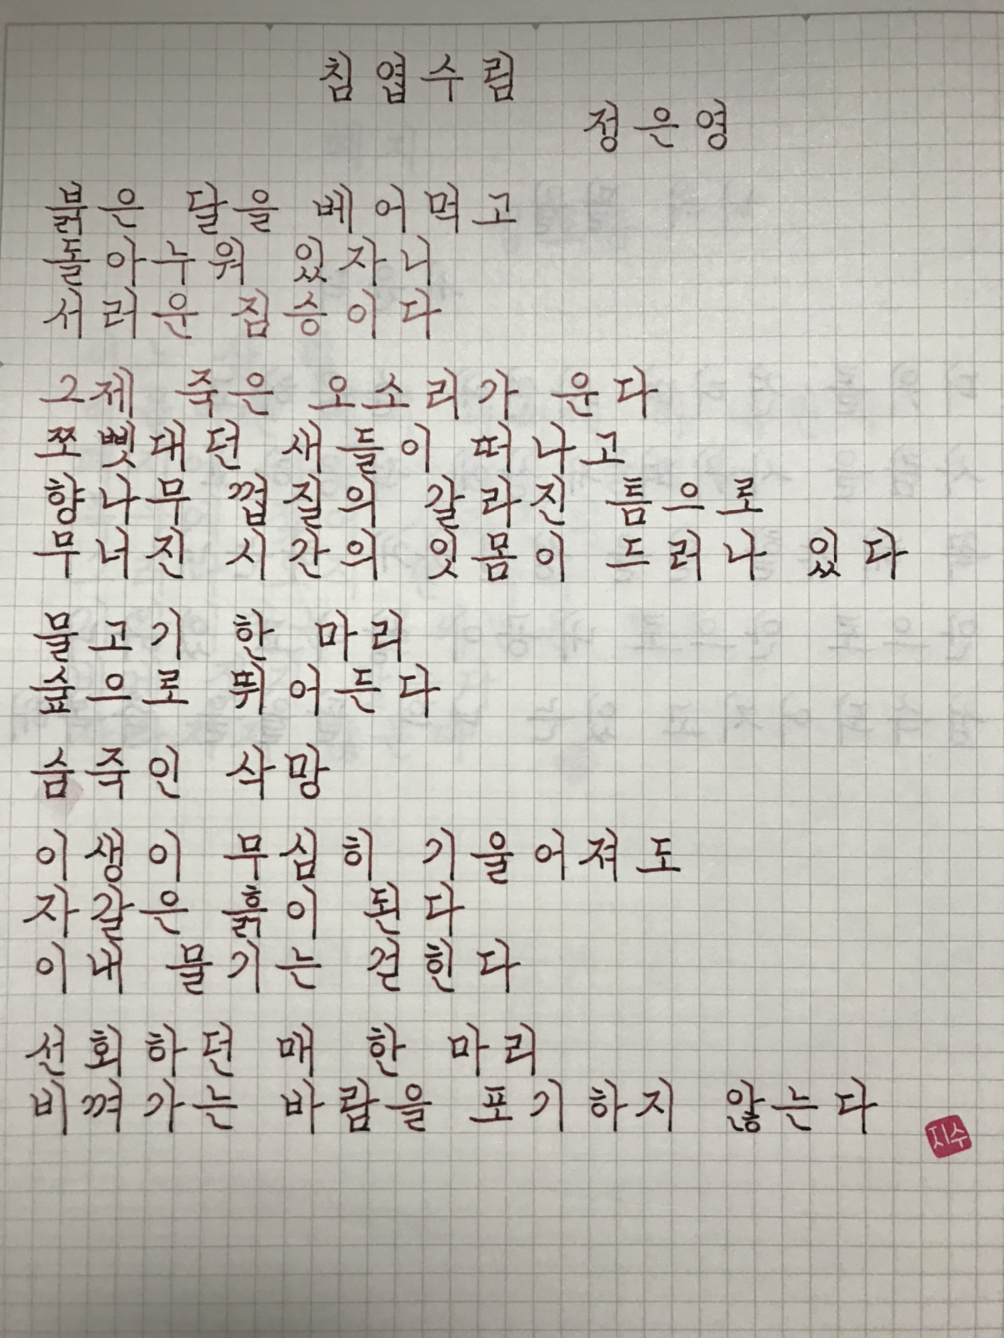 침엽수림
정은영
붉은 달을 베어먹고
돌아누워 있자니
서러운 짐승이다
그제 죽은 오소리가 운다
쪼삣대던 새들이 떠나고
향나무 껍질의 갈라진 틈으로
무너진 시간의 잇몸이 드러나 있다
물고기 한 마리
숲으로 뛰어든다
숨죽인 삭망
이생이 무심히 기울어져도
자갈은 흙이 된다
이내 물기는 걷힌다
선회하던 매 한 마리
비껴가는 바람을 포기하지 않는다
지수